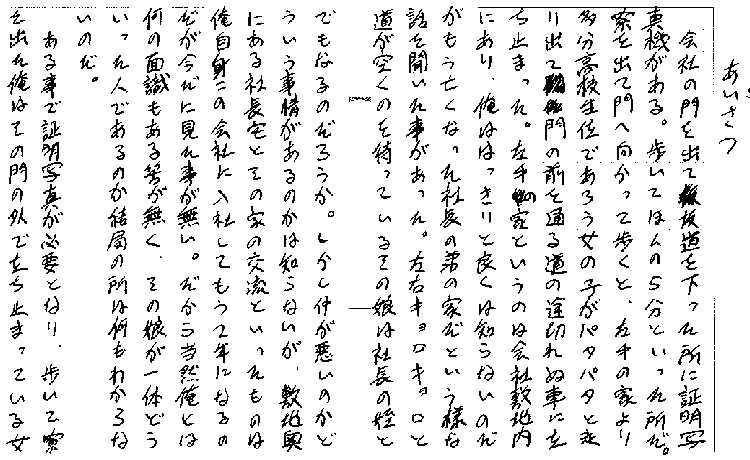 あいさつ
会社の門を出て坂道を下った所に証明写
真機がある。歩いてほんの5分といった所だ。
寮を出て門へ向かって歩くと、左手の家より
多分高校生位であろう女の子がパタパタと走
り出て門の前を通る道の途切れぬ事に立
ち止まった。左手の家というのは会社敷地内
にあり、俺ははっきりと良くは知らないのだ
がもう亡くなった社長の弟の家だという様な
話を聞いた事があった。左右キョロキョロと
道が空くのを待っているその娘は社長の姪と
でもなるのだろうか。しかし仲が悪いのかど
ういう事情があるのかは知らないが、敷地奥
にある社長宅とその家の交流といったものは
俺自身この会社に入社してもう7年になるの
だが今だに見た事が無い。だから当然俺とは
何の面識もある筈が無く、その娘が一体どう
いった人であるのか結局の所は何もわからな
いのだ。
ある事で証明写真が必要となり、歩いて寮
を出た俺はその門の外で立ち止まっている女